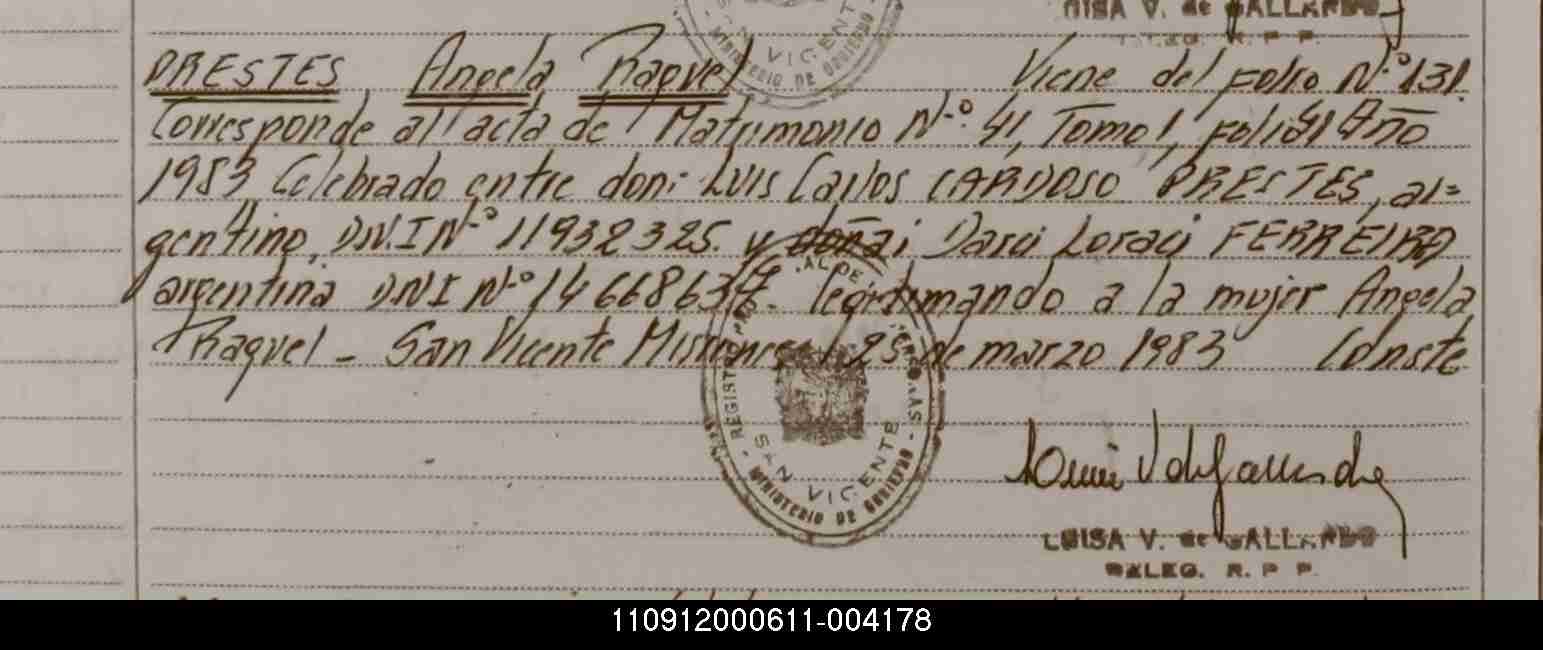 LUISA V. de GALLARDO
DELEG. R. P. P.
SAN VICENTE
MINISTERIO DE GOBIERNO
PRESTES Angela Raquel Viene del folio N.º 131.
Corresponde al acta de Matrimonio N.º 41, Tomo 1, folio 41 Año
1983 Celebrado entre don: LUIS Carlos CARDOSO PRESTES, ar=
gentino, D.N.I N.º 11932325. y doña: Darci Loraci FERREIRA
argentina DNI N.º 14668637.- legitimando a la mujer Angela
Raquel - San Vicente Misiones, 25 de marzo 1983 Conste
SAN VICENTE
MINISTERIO DE GOBIERNO
LUISA V. de GALLARDO
DELEG. R. P. P.
110912000611-004178